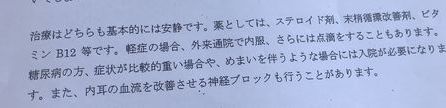 治療はどちらも基本的には安静です。薬としては、ステロイド剤、末梢循環改善剤、ビタ
ミン B12 等です。軽症の場合、外来通院で内服、さらには点滴をすることもあります。
糖尿病の方、症状が比較的重い場合や、めまいを伴うような場合には入院が必要になりま
す。また、内耳の血流を改善させる神経ブロックも行うことがあります。